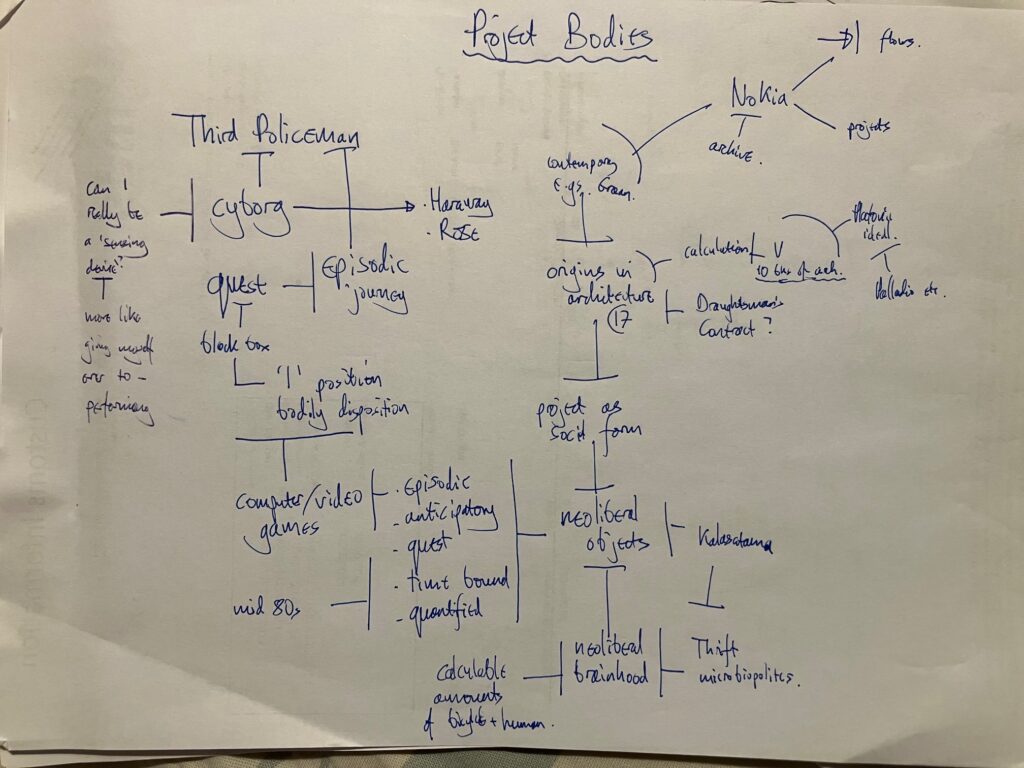 Project Bodies
flows.
Nokia
projects
archive.
Third Policeman
contemporary
e.gs. Green.
Can I
really be
a 'sensing
device'?
cyborg
. Haraway
. Rose
more like
giving myself
over to –
performing
quest
episodic
journey
black box
'I' position
bodily disposition
origins in
architecture
17
calculation
V
10 bks of arch.
Platonic
ideal.
Palladio etc.
Draughtsman's
Contract?
project as
social form
computer/video
games
. episodic
- anticipatory
- quest
mid 80s
- time bound
- quantified
neoliberal
objects
Kalasatama
neoliberal
brainhood
Thrift
microbiopolitics.
calculable
amounts
of bicycle + human.